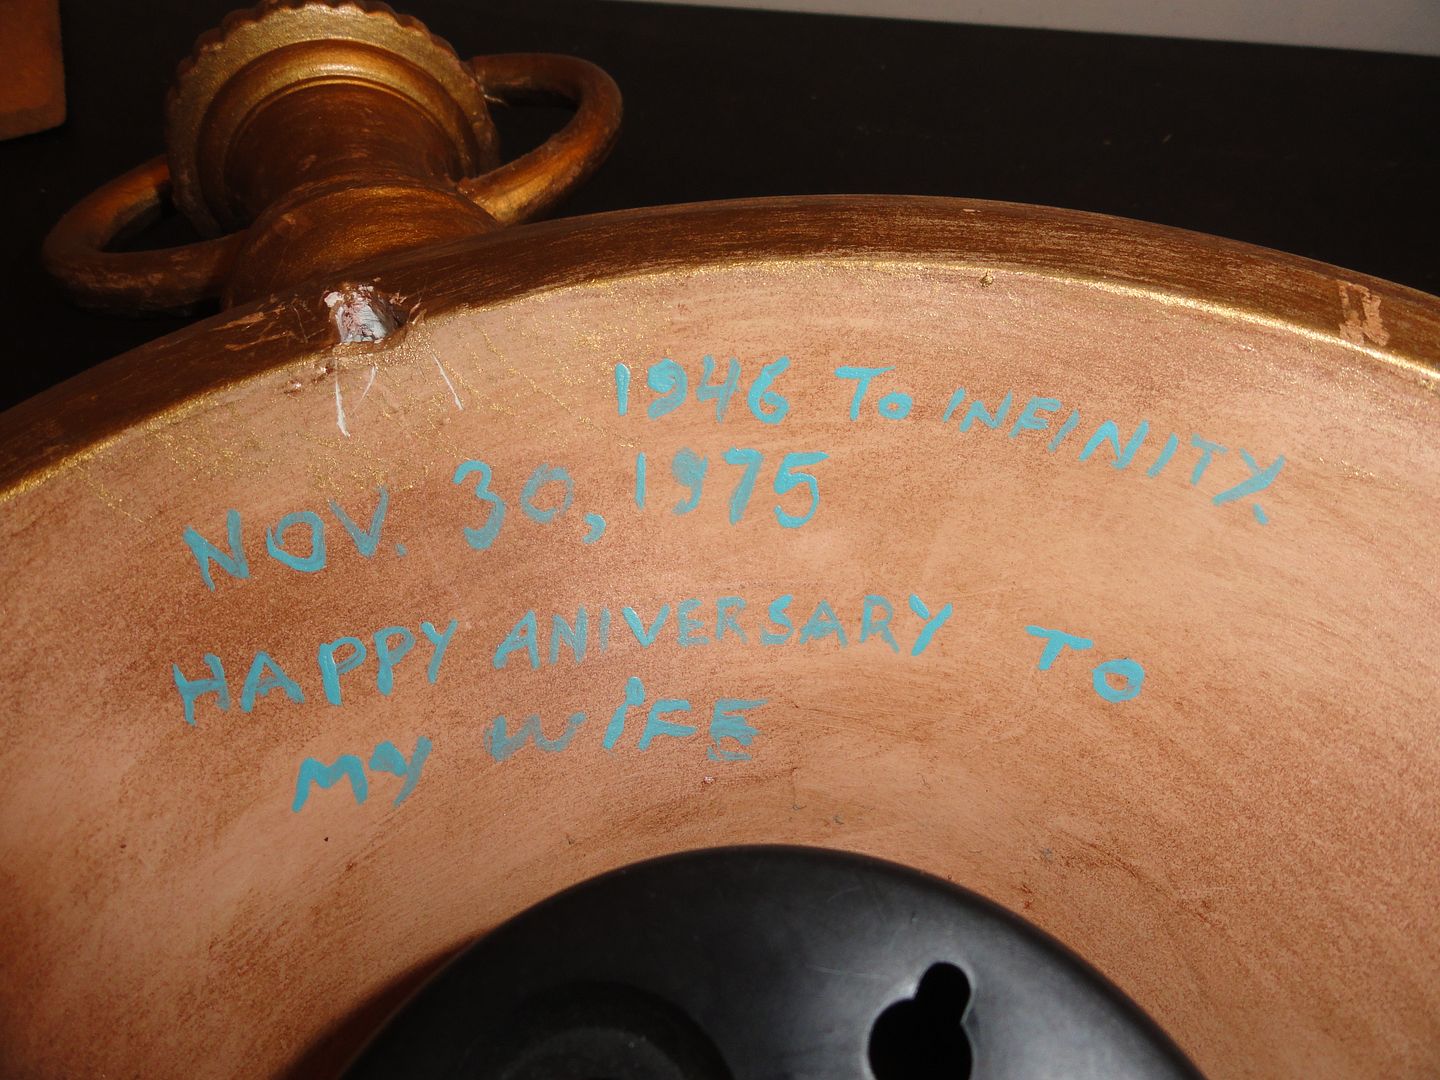 1946 To INFINITY.
NOV. 30, 1975
HAPPY ANIVERSARY TO
My WiFE